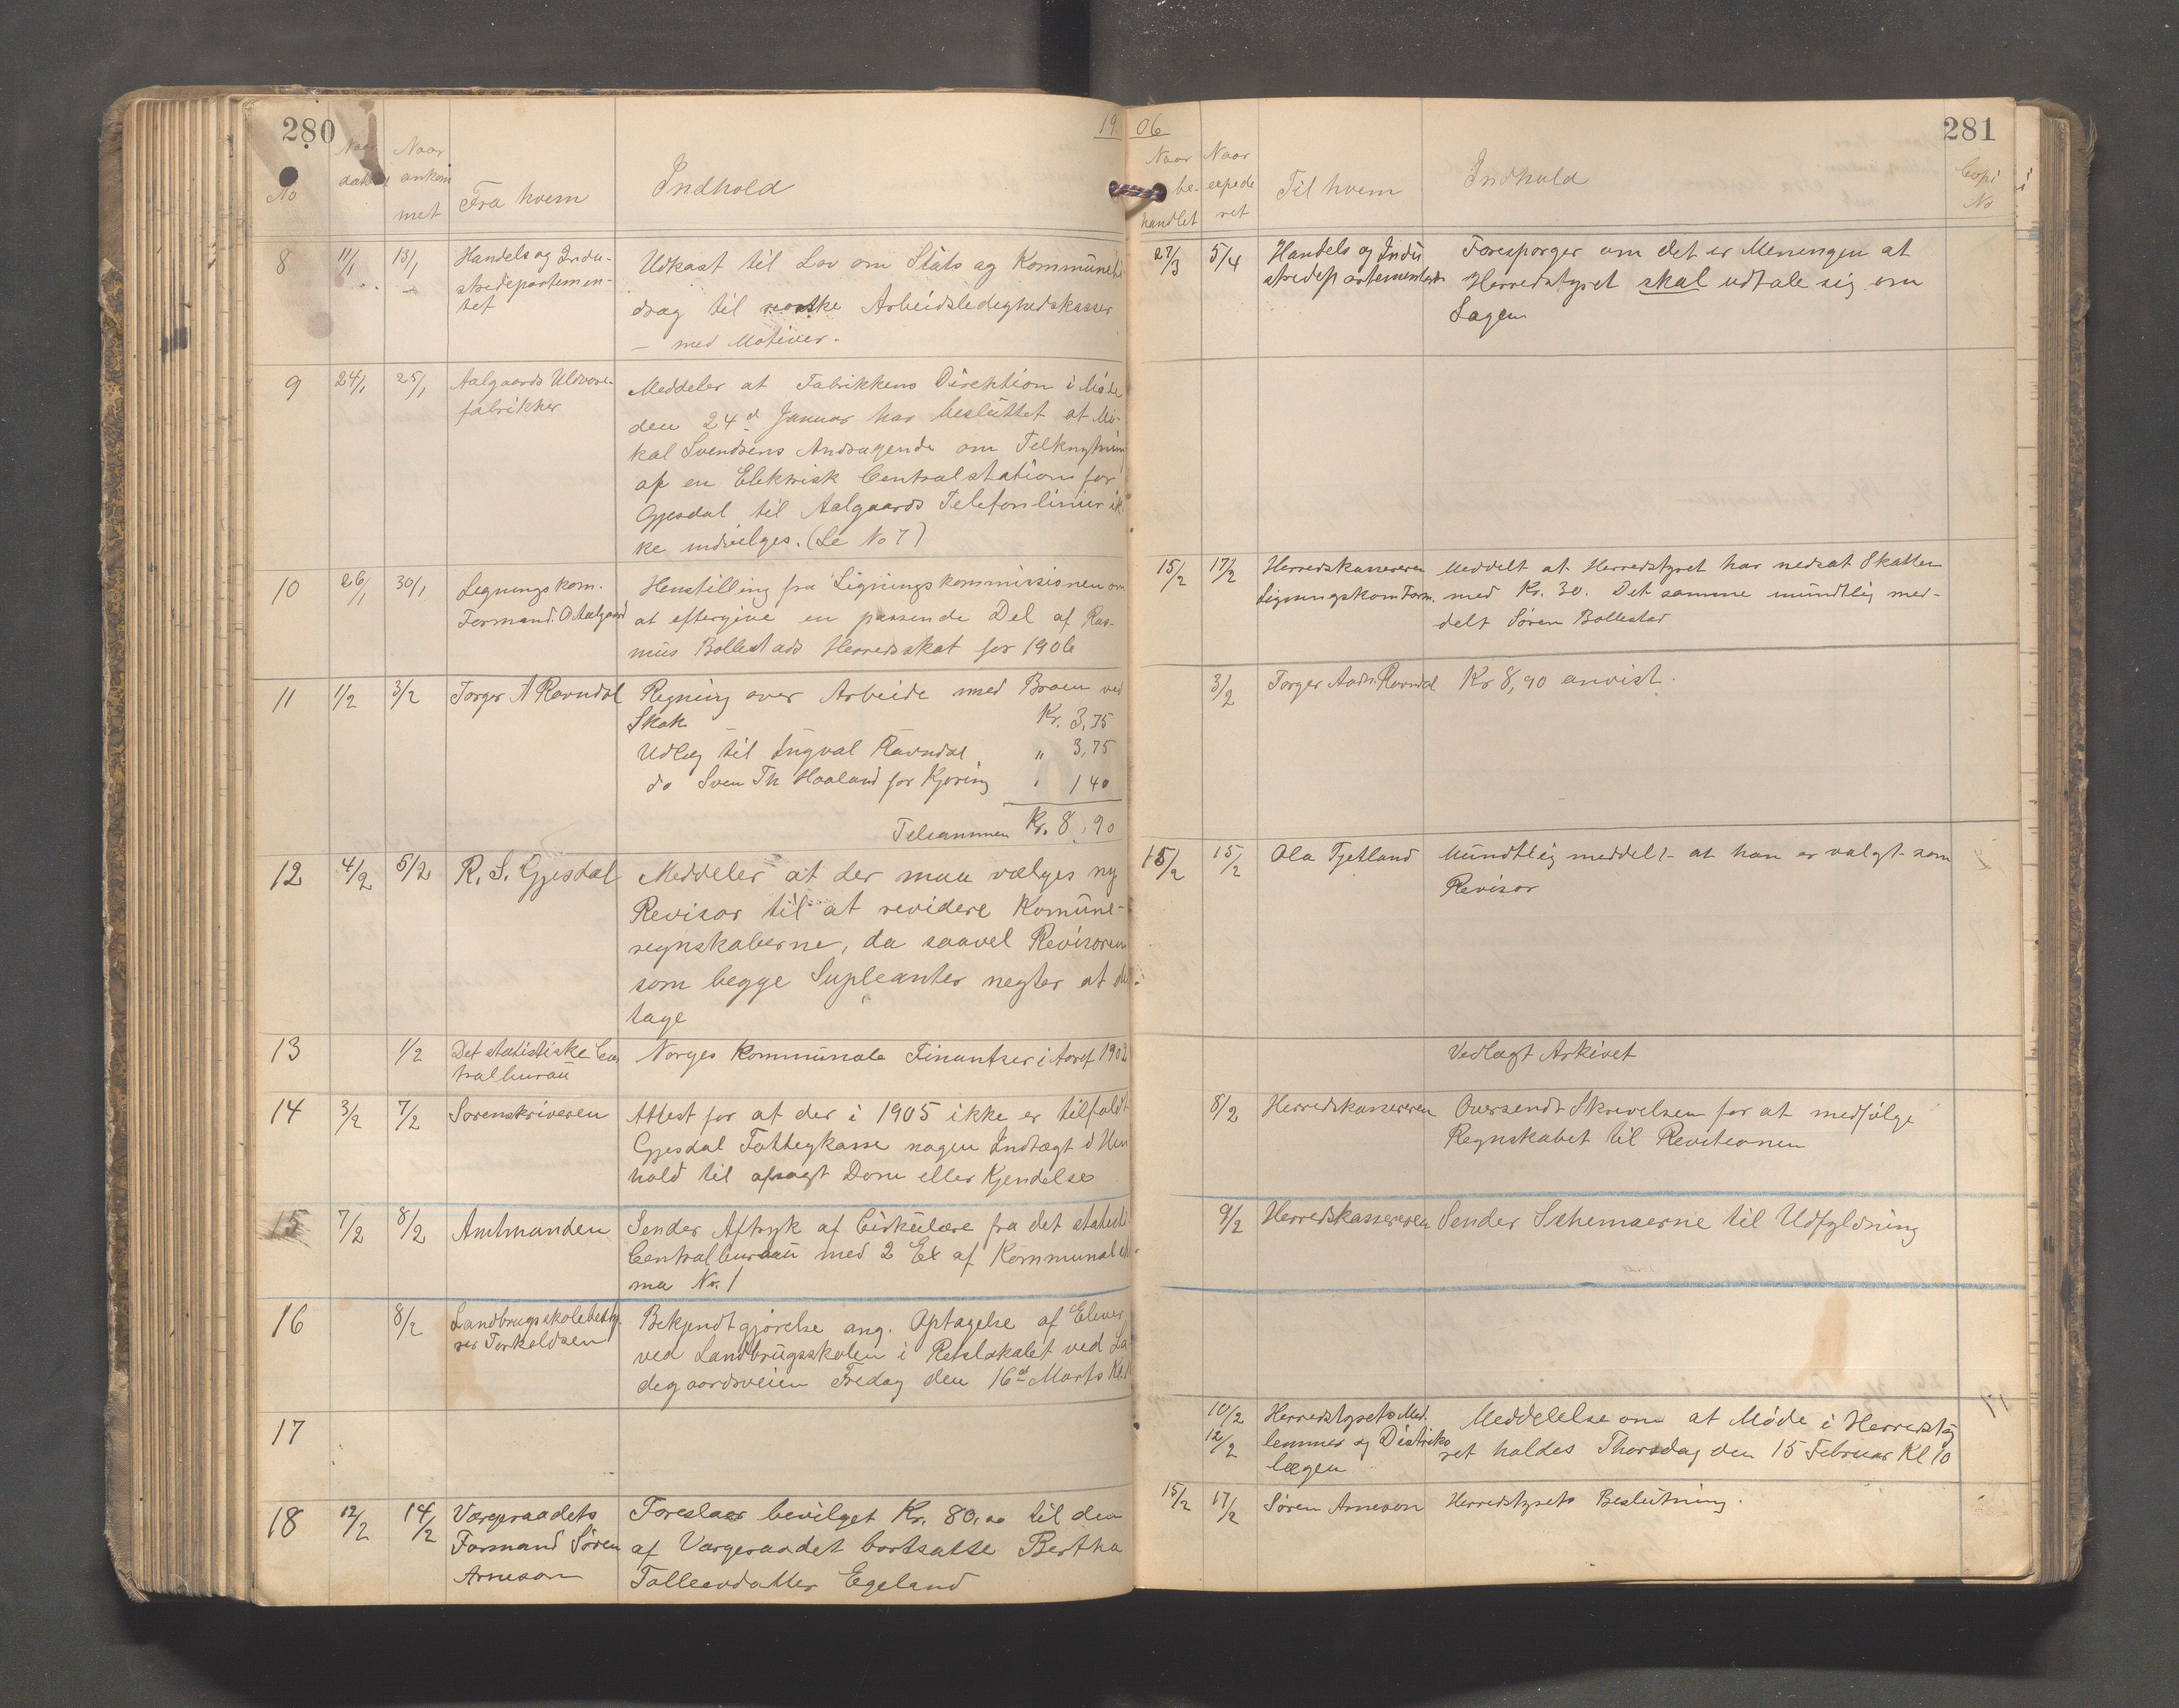 280
19
No
Naar
dateret
Naar
ankom
met
Fra hvem
Indhold
8
11/1
13/1
Handels og Indu-
stridepartemen-
tet
Udkast til Lov om Stats og Kommunebi
drag til norske Arbeidsledighedskasser
— med Motiver.
9
24/1
25/1
Aalgaards Uldvare-
fabrikker
Meddeler at Fabrikkens Direktion i Møde
den 24d Januar har besluttet at Mi-
kal Svendsens Andragende om Tilknytning
af en Elektrisk Centralstation for
Gjesdal til Aalgaards Telefonlinier ik
ke indvilges. (Se No 7)
10
26/1
30/1
Ligningskom.
Formand. O Aalgaard
Henstilling fra Ligningskommissionen om
at eftergive en passende Del af Ras-
mus Bollestads Herredsskat for 1906
11
1/2
3/2
Torger A Ravndal
Regning over Arbeide med Broen ved
Skak Kr. 3,75
Udlæg til Ingval Ravndal " 3,75
do Sven Th Haaland for Kjøring " 1 40
Tilsammen Kr. 8,90
12
4/2
5/2
R. S. Gjesdal
Meddeler at der maa vælges ny
Revisor til at revidere Komune-
regnskaberne, da saavel Revisoren
som begge Supleanter negter at del-
tage
13
1/2
Det statistiske Cen
tralbureau
Norges Kommunale Finantser i Aaret 1902
14
3/2
7/2
Sorenskriveren
Attest for at der i 1905 ikke er tilfaldt
Gjesdal Fattigkasse nogen Indtægt i Hen
hold til afsagt Dom eller Kjendelse
15
7/2
8/2
Amtmanden
Sender Aftryk af Cirkulære fra det statisti
Centralbureau med 2 Ex af Kommunalske
ma No. 1
16
8/2
Landbrugsskolebesty.
rer Torkeldsen
Bekjendtgjørelse ang. Optagelse af Elever
ved Landbrugsskolen i Retslokalet ved La
degaardsveien Fredag den 16d Marts Kl.
17
18
12/2
14/2
Værgeraadets
Formand Sören
Arneson
Foreslaar bevilget Kr. 80,00 til den
af Værgeraadet bortsatte Bertha
Tolleivsdatter Egeland
06
281
Naar
be-
handlet
Naar
expede
ret
Til hvem
Indhold
Copi
No
27/3
5/4
Handels og Indu
stridepartementet
Forespørger om det er Meningen at
Herredstyret skal udtale sig om
Sagen
15/2
17/2
Herredskassereren
LigningskomForm.
Meddelt at Herredstyret har nedsat Skatten
med Kr. 30. Det samme mundtlig med-
delt Sören Bollestad
3/2
Torger Aadn. Ravndal
Kr 8,90 anvist.
15/2
15/2
Ola Tjetland
Mundtlig meddelt at han er valgt som
Revisor
Vedlagt Arkivet
8/2
Herredskassereren
Oversendt Skrivelsen for at medfølge
Regnskabet til Revisionen
9/2
Herredskassereren
Sender Schemaerne til Udfyldning
10/2
12/2
Herredstyrets Med.
lemmer og Distrikts
lægen
Meddelelse om at Møde i Herredsty
ret holdes Thorsdag den 15 Februar Kl 10
15/2
17/2
Sören Arneson
Herredstyrets Beslutning.